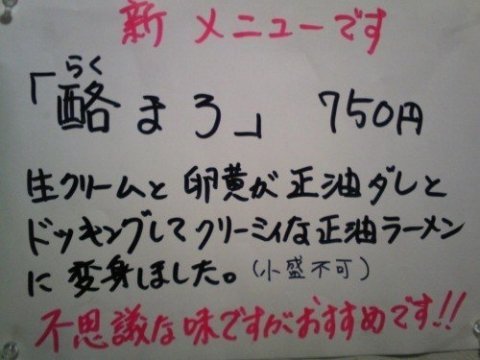 新メニューです
らく
「酪まろ」 750円
生クリームと卵黄が正油ダレと
ドッキングしてクリーミィな正油ラーメン
に変身しました。(小盛不可)
不思議な味ですがおすすめです!!